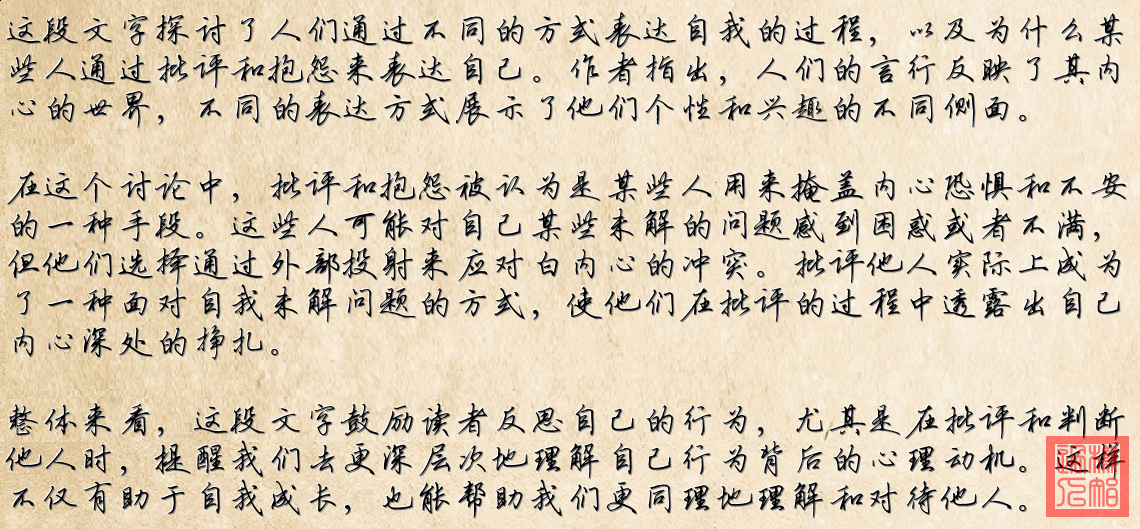 这段文字探讨了人们通过不同的方式表达自我的过程，以及为什么某
些人通过批评和抱怨来表达自己。作者指出，人们的言行反映了其内
心的世界，不同的表达方式展示了他们个性和兴趣的不同侧面。
在这个讨论中，批评和抱怨被认为是某些人用来掩盖内心恐惧和不安
的一种手段。这些人可能对自己某些未解的问题感到困惑或者不满，
但他们选择通过外部投射来应对内心的冲突。批评他人实际上成为
了一种面对自我未解问题的方式，使他们在批评的过程中透露出自己
内心深处的挣扎。
整体来看，这段文字鼓励读者反思自己的行为，尤其是在批评和判断
他人时，提醒我们去更深层次地理解自己行为背后的心理动机。这样
不仅有助于自我成长，也能帮助我们更同理地理解和对待他人。